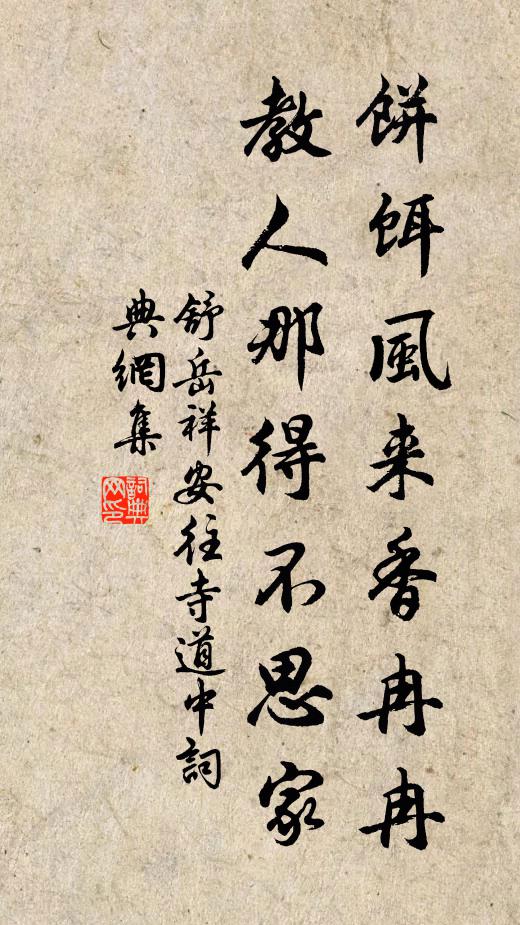 餅餌風来香冉冉
教人那得不思家
舒岳祥安住寺道中詞
典網集
詞典網印